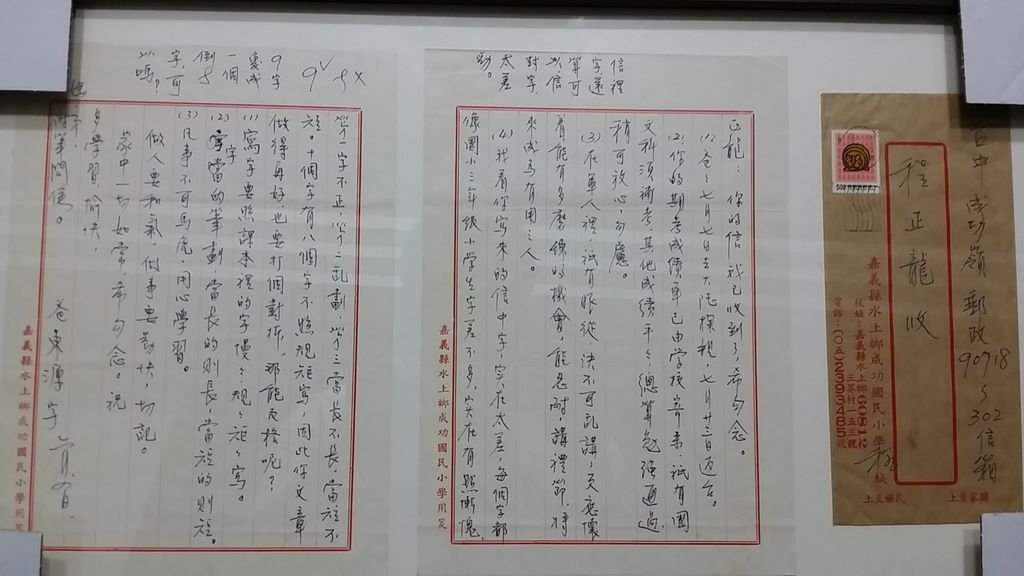 台中成功嶺郵政90718之302信箱
程正龍收
嘉義縣水上鄉成功國民小學
校址：嘉義縣水上鄉60811
三界村一五三號
電話：(○五)2393485號
緘
正龍：你的信我已收到了，希勿念。
(1)爸之七月七日去大陸探親，七月廿三日返台。
(2)你的期考成績單已由學校寄來，祇有國
文科須補考，其他成績平平，總算勉强通過，
稍可放心，勿慮。
(3)在軍人裡，祇有服從，決不可亂講，
看能有多磨練的機會，能忍耐，講禮節，將
來成為有用之人。
(4)我看你寫來的信中字，實在太差，每個字都
像國小三年級小學生字差不多，實在有點慚愧，
信裡
字還
算可以信
對字，
太差
勁。
嘉義縣水上鄉成功國民小學用箋
第一字不正，第二亂劃，第三當長不長，當短不
短。十個字有八個字不照規矩寫，因此你文章
做得再好，也要打個對折，那能及格呢？
(1)寫字要照課本裡的字慢慢規規矩矩寫。
(2)字當的筆劃，當長的則長，當短的則短。
(3)凡事不可馬虎，用心學習。
做人要和氣，做事要勤快，切記。
家中一切如常，希勿念。祝
多學習，愉快，
9字
變成
一個
倒
字，可
以嗎？
爸東潭字
嘉義縣水上鄉成功國民小學用箋